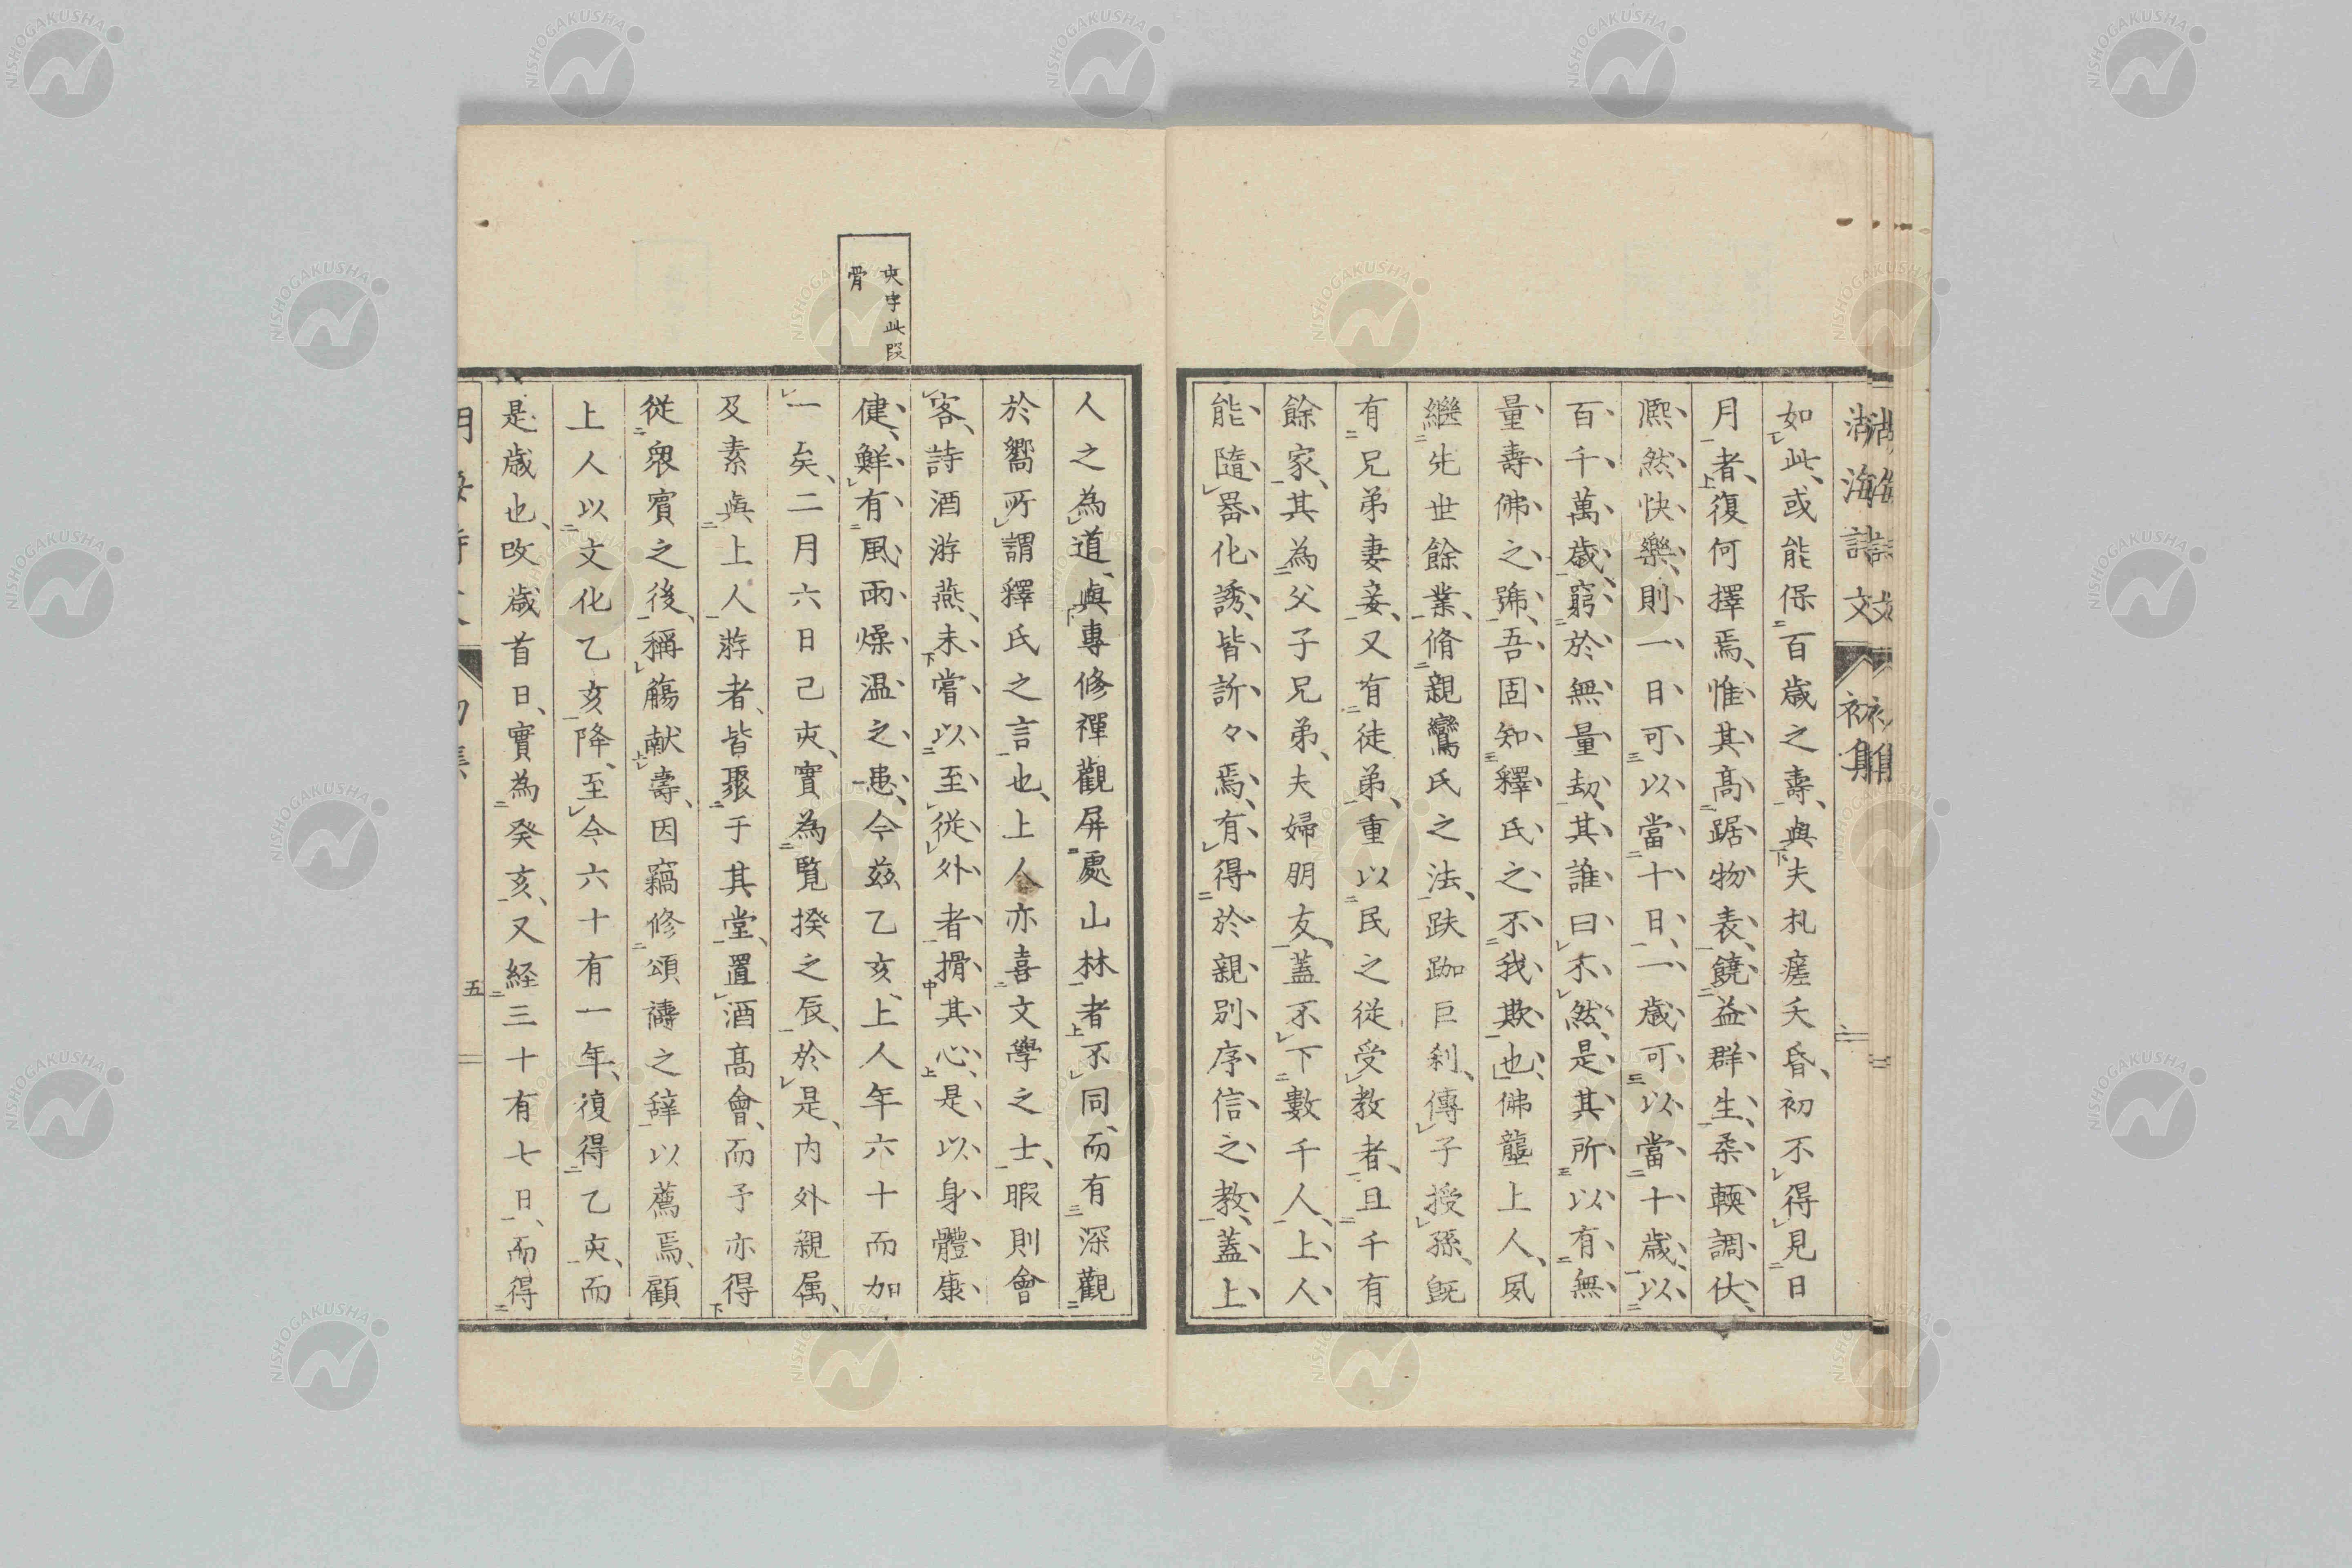 湖海詩文 初集
如此、或能保百歳之壽、與夫札瘥夭昏、初不得見日
月者、復何擇焉、惟其高踞物表、饒益群生、柔輭調伏、
熈然快樂、則一日可以當十日、一歳可以當十歳、以
百千萬歳、窮於無量劫、其誰曰不然、是其所以有無
量壽佛之號、吾固知釋氏之不我欺也、佛龕上人、夙
繼先世餘業、脩親鸞氏之法、趺跏巨刹、傳子授孫、既
有兄弟妻妾、又有徒弟、重以民之從受教者、且千有
餘家、其為父子兄弟、夫婦朋友、蓋不下數千人、上人
能隨器化誘、皆訢々焉、有得於親別序信之教、蓋上
人之為道、與專修禪觀屏處山林者不同、而有深觀
於嚮所謂釋氏之言也、上人亦喜文學之士、暇則會
客、詩酒游燕、未嘗以至從外者搰其心、是以身體康
健、鮮有風雨燥温之患、今茲乙亥、上人年六十而加
一矣、二月六日己夾、實為覽揆之辰、於是、内外親属、
及素與上人游者、皆聚于其堂、置酒高會、而予亦得
從衆賓之後、稱觴献壽、因竊修頌禱之辞、以薦焉、顧
上人以文化乙亥降、至今六十有一年、復得乙夾、而
是歳也、改歳首日、實為癸亥、又経三十有七日、而得
夾字此段
骨
五